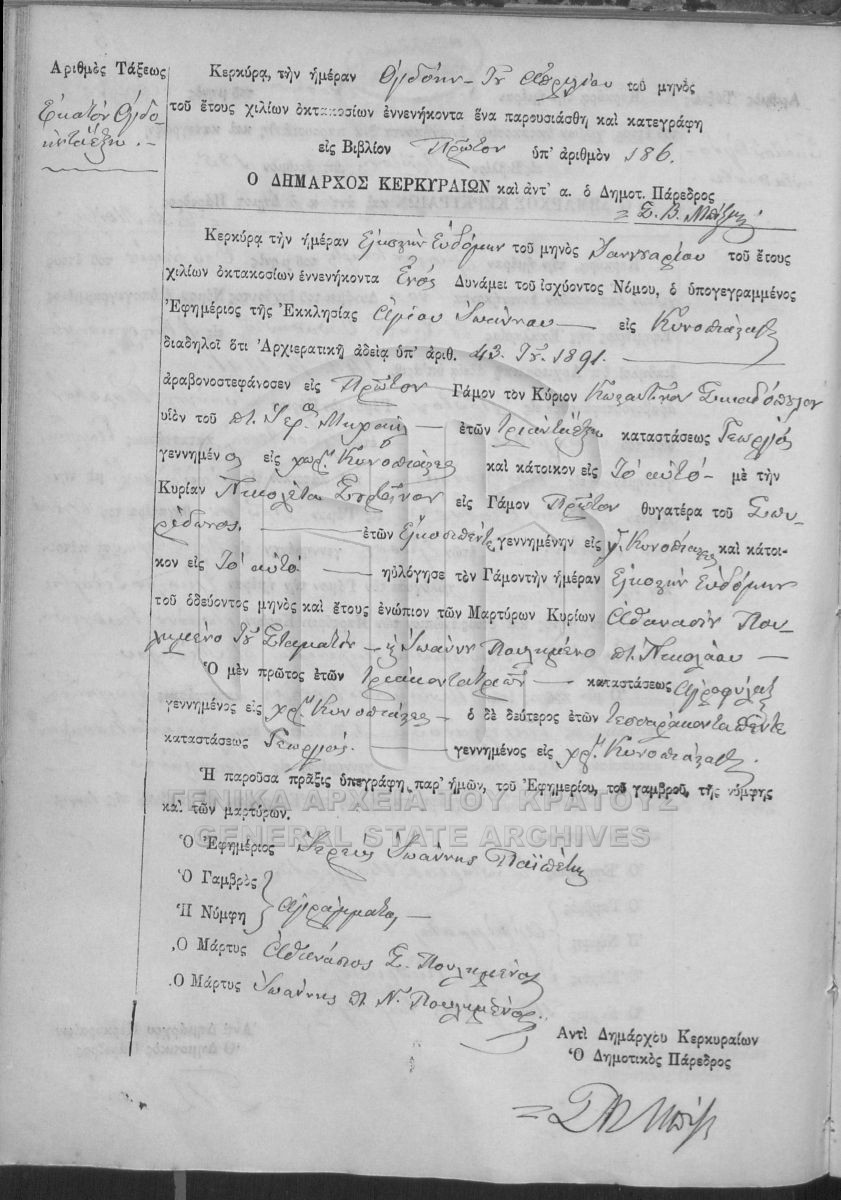 Ἀριθμὸς Τάξεως
Ἑκατὸν Ὀγδο-
ηνταέξη .-
Κερκύρᾳ, τὴν ἡμέραν Ὀγδόην - Ἀπριλίου τοῦ μηνὸς
τοῦ ἔτους χιλίων ὀκτακοσίων ἐννενήκοντα ἕνα παρουσιάσθη καὶ κατεγράφη
εἰς Βιβλίον Πρῶτον ὑπ' ἀριθμὸν 186.
Ὁ ΔΗΜΑΡΧΟΣ ΚΕΡΚΥΡΑΙΩΝ καὶ ἀντ' α. ὁ Δημοτ. Πάρεδρος
Σ. Β.
Κερκύρᾳ τὴν ἡμέραν Εἰκοστὴν Ἑβδόμην τοῦ μηνὸς Ἰαννουαρίου τοῦ ἔτους
χιλίων ὀκτακοσίων ἐννενήκοντα Ἑνός Δυνάμει τοῦ ἰσχύοντος Νόμου, ὁ ὑπογεγραμμένος
Ἐφημέριος τῆς Ἐκκλησίας Ἁγίου Ἰωάννου — εἰς Κυνοπιάσταις
διαδηλοῖ ὅτι Ἀρχιερατικῇ ἀδείᾳ ὑπ' ἀριθ. 43. 1891. —
ἀραβονοστεφάνοσεν εἰς Πρῶτον Γάμον τὸν Κύριον Κωσταντῖνον
υἱὸν τοῦ Μιχαήλ — ἐτῶν τριάντα ἕξη καταστάσεως Γεωργὸς
γεννημένος εἰς χωρ. Κυνοπιάστες καὶ κάτοικον εἰς Τὸ αὐτό - μὲ τὴν
Κυρίαν Νικολέτα εἰς Γάμον Πρῶτον θυγατέρα τοῦ Σπυ-
ρίδωνος. — ἐτῶν Εἰκοσιπέντε γεννημένην εἰς χ. Κυνοπιάστες καὶ κάτοι-
κον εἰς Τὸ αὐτό — ηὐλόγησε τὸν Γάμον τὴν ἡμέραν Εἰκοστὴν Ἑβδόμην
τοῦ ὁδεύοντος μηνὸς καὶ ἔτους ἐνώπιον τῶν Μαρτύρων Κυρίων Ἀθανάσιν Που-
λημένο Σταματίου — Ἰωάννη Πουλημένο Νικολάου —
Ὁ μὲν πρῶτος ἐτῶν — καταστάσεως Ἀγροφύλαξ
γεννημένος εἰς χωρ. Κυνοπιάστες — ὁ δὲ δεύτερος ἐτῶν τεσσαράκοντα πέντε
καταστάσεως Γεωργός. — γεννημένος εἰς χωρ. Κυνοπιάσταις.
Ἡ παροῦσα πρᾶξις ὑπεγράφη παρ' ἡμῶν, τοῦ Ἐφημερίου, τοῦ γαμβροῦ, τῆς νύμφης
καὶ τῶν μαρτύρων.
ΓΕΝΙΚΑ ΑΡΧΕΙΑ ΤΟΥ ΚΡΑΤΟΥΣ
GENERAL STATE ARCHIVES
Ὁ Ἐφημέριος Ἱερεὺς Ἰωάννης Παϊπέτης
Ὁ Γαμβρὸς
Ἡ Νύμφη Ἀγράμματοι —
Ὁ Μάρτυς Ἀθανάσιος Σ. Πουλημένος
Ὁ Μάρτυς Ἰωάννης Ν. Πουλημένος.
Ἀντὶ Δημάρχου Κερκυραίων
Ὁ Δημοτικὸς Πάρεδρος